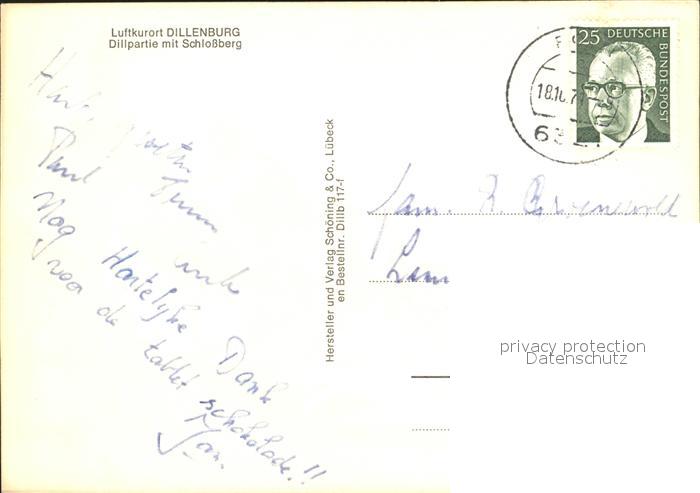 Luftkurort DILLENBURG
Dillpartie mit Schloßberg
25 DEUTSCHE BUNDESPOST
18.10.7
Hersteller und Verlag Schöning & Co., Lübeck
en Bestellnr. Dillb 117-f
Paul
Nog Hartelijke Dank
voor de tablet schokolade.!!
Jan.
Fam.
privacy protection
Datenschutz